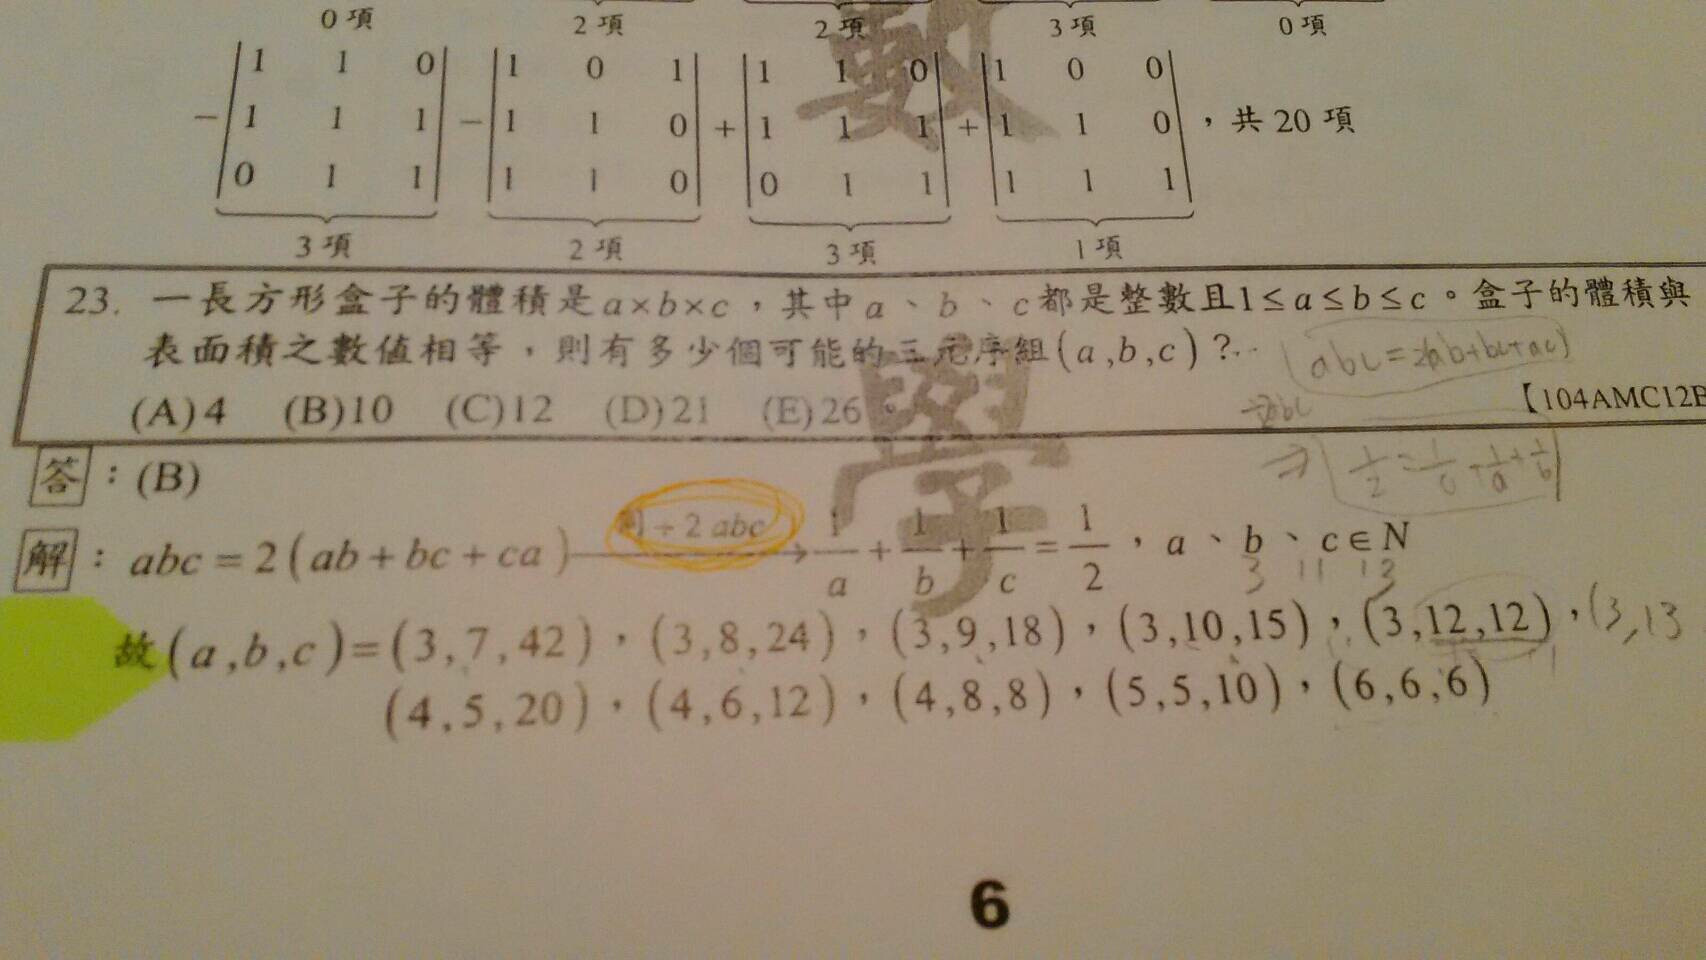 0項 2項 2項 3項 0項
− | 1 1 0 | − | 1 0 1 | + | 1 1 0 | + | 1 0 0 |
| 1 1 1 | | 1 1 0 | | 1 1 1 | | 1 1 0 | ,共20項
| 0 1 1 | | 1 1 0 | | 0 1 1 | | 1 1 1 |
3項 2項 3項 1項
23. 一長方形盒子的體積是a×b×c,其中a、b、c都是整數且1≤a≤b≤c。盒子的體積與
表面積之數值相等,則有多少個可能的三元序組(a,b,c)?
abc=2(ab+bc+ac)
(A)4 (B)10 (C)12 (D)21 (E)26。
【104AMC12B
÷2abc
⇒ 1/2=1/c+1/a+1/b
答:(B)
解:abc=2(ab+bc+ca) ÷2abc → 1/a+1/b+1/c=1/2,a、b、c∈N
3 11 13
故(a,b,c)=(3,7,42),(3,8,24),(3,9,18),(3,10,15),(3,12,12),(3,13
(4,5,20),(4,6,12),(4,8,8),(5,5,10),(6,6,6)
數
學
6